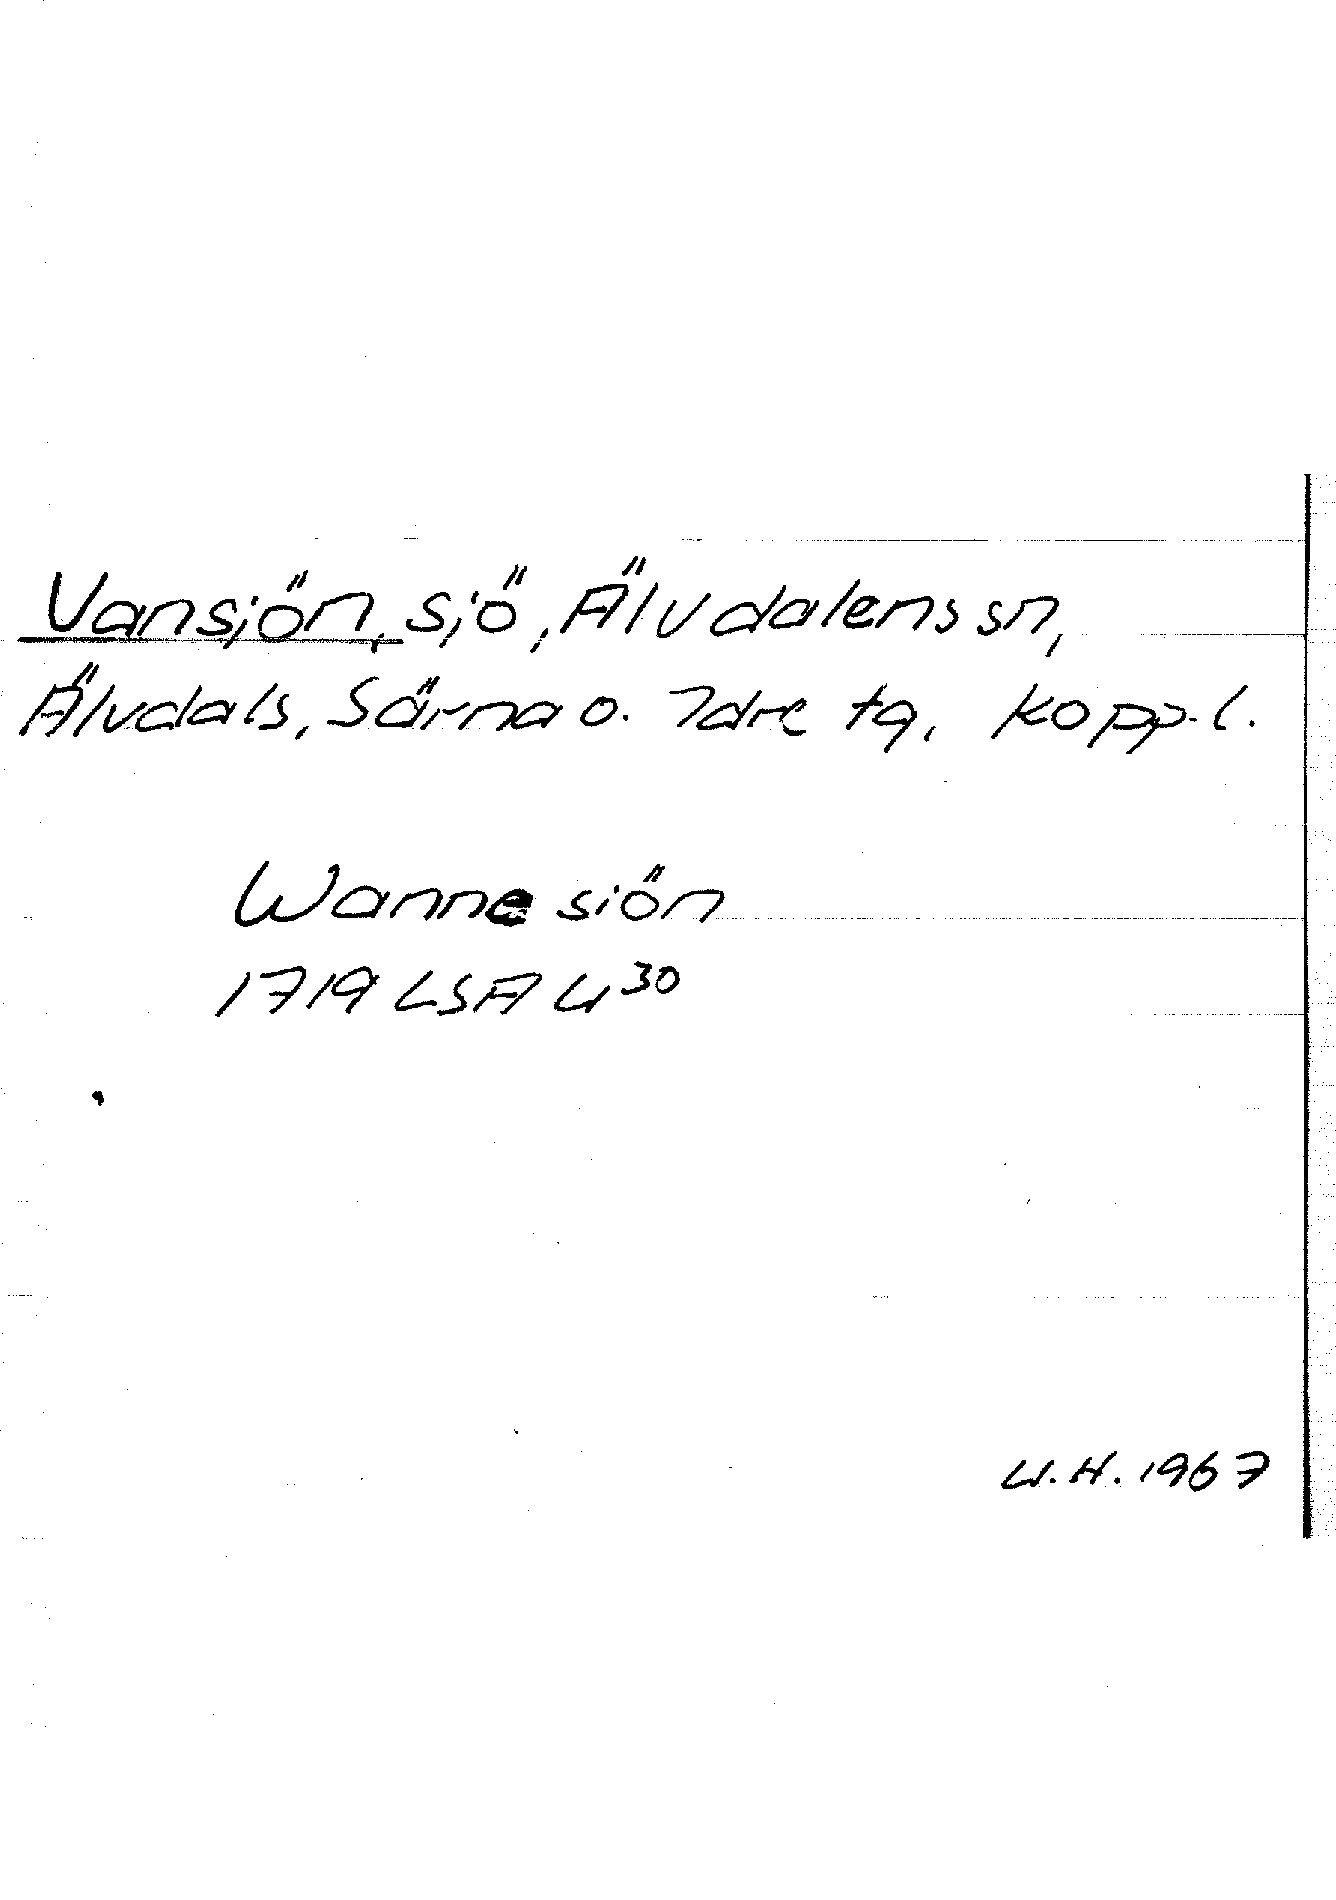 Vansjön, sjö, Älvdalens sn,
Älvdals, Särna o. Idre tg, Kopp. l.
Wanne siön
1719 LSA U³⁰
U.H. 1967